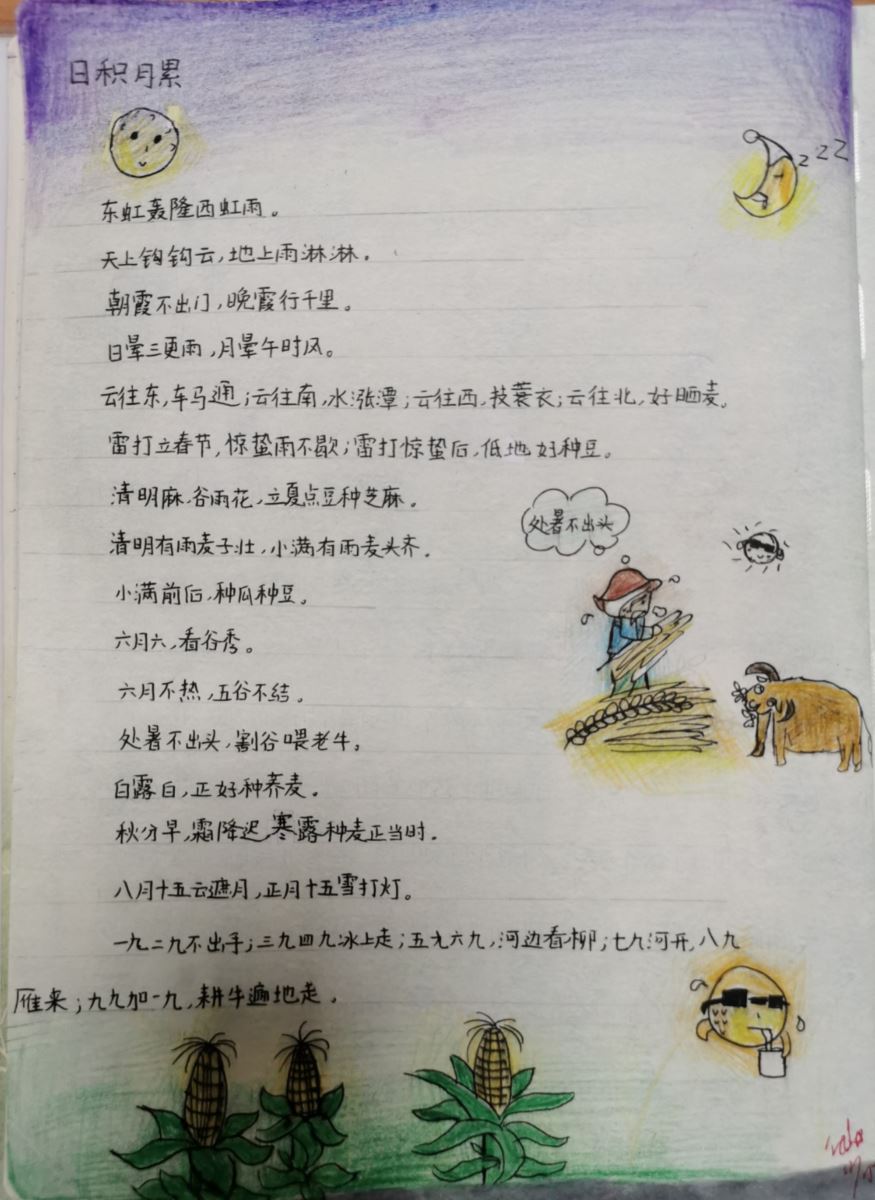 日积月累
zzz
东虹轰隆西虹雨。
天上钩钩云,地上雨淋淋。
朝霞不出门,晚霞行千里。
日晕三更雨,月晕午时风。
云往东,车马通;云往南,水涨潭;云往西,披蓑衣;云往北,好晒麦。
雷打立春节,惊蛰雨不歇;雷打惊蛰后,低地好种豆。
清明麻,谷雨花,立夏点豆种芝麻。
处暑不出头
清明有雨麦子壮,小满有雨麦头齐。
小满前后,种瓜种豆。
六月六,看谷秀。
六月不热,五谷不结。
处暑不出头,割谷喂老牛。
白露白,正好种荞麦。
秋分早,霜降迟,寒露种麦正当时。
八月十五云遮月,正月十五雪打灯。
一九二九不出手;三九四九冰上走;五九六九,河边看柳;七九河开,八九
雁来;九九加一九,耕牛遍地走。